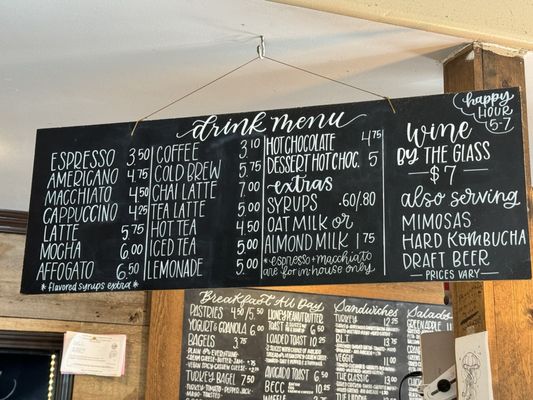 drink menu
ESPRESSO 3.50
AMERICANO 4.75
MACCHIATO 4.50
CAPPUCCINO 4.25
LATTE 5.75
MOCHA 6.00
AFFOGATO 6.50
* flavored syrups extra *
COFFEE 3.10
COLD BREW 5.75
CHAI LATTE 7.00
TEA LATTE 5.00
HOT TEA 4.50
ICED TEA 5.00
LEMONADE 5.00
HOT CHOCOLATE 4.75
DESSERT HOT CHOC. 5
extras
SYRUPS .60/.80
OAT MILK or
ALMOND MILK 1.75
*espresso + macchiato
are for in-house only*
happy
HOUR
5-7
wine
BY THE GLASS
$7
also serving
MIMOSAS
HARD KOMBUCHA
DRAFT BEER
PRICES VARY
Breakfast All Day
PASTRIES 4.50/5.50
YOGURT & GRANOLA 6.00
BAGELS 3.75
PLAIN • EVERYTHING
TURKEY BAGEL 7.50
HONEY PEANUT BUTTER
TOAST 6.50
LOADED TOAST 10.25
AVOCADO TOAST
BECC 10.25
WAFFLE
Sandwiches
TURKEY
BLT
VEGGIE
THE CLASSIC
Salads
GREEK